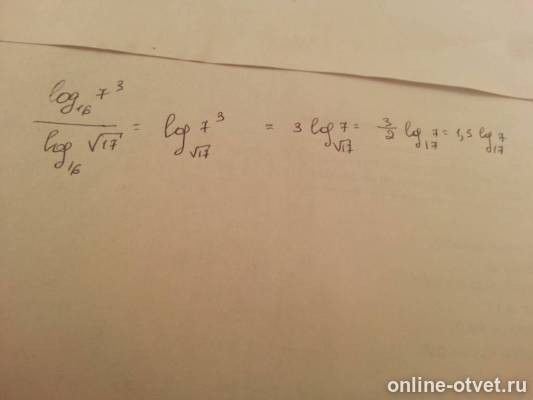 log₁₆ 7³ / log₁₆ √17 = log_√17 7³ = 3 log_√17 7 = 3/2 log₁₇ 7 = 1,5 log₁₇ 7
online-otvet.ru